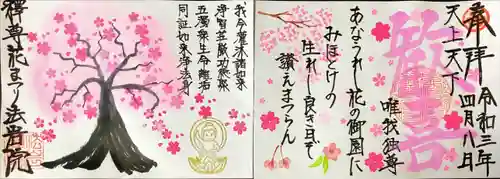 奉拝
令和三年
四月八日
天上天下
唯我独尊
歓喜
あなうれし花の御園に
みほとけの
生れし良き日ぞ
讃えまつらん
我今灌沐諸如来
浄智荘厳功徳聚
五濁衆生令離垢
同証如来浄法身
釋尊花まつり
法岩院